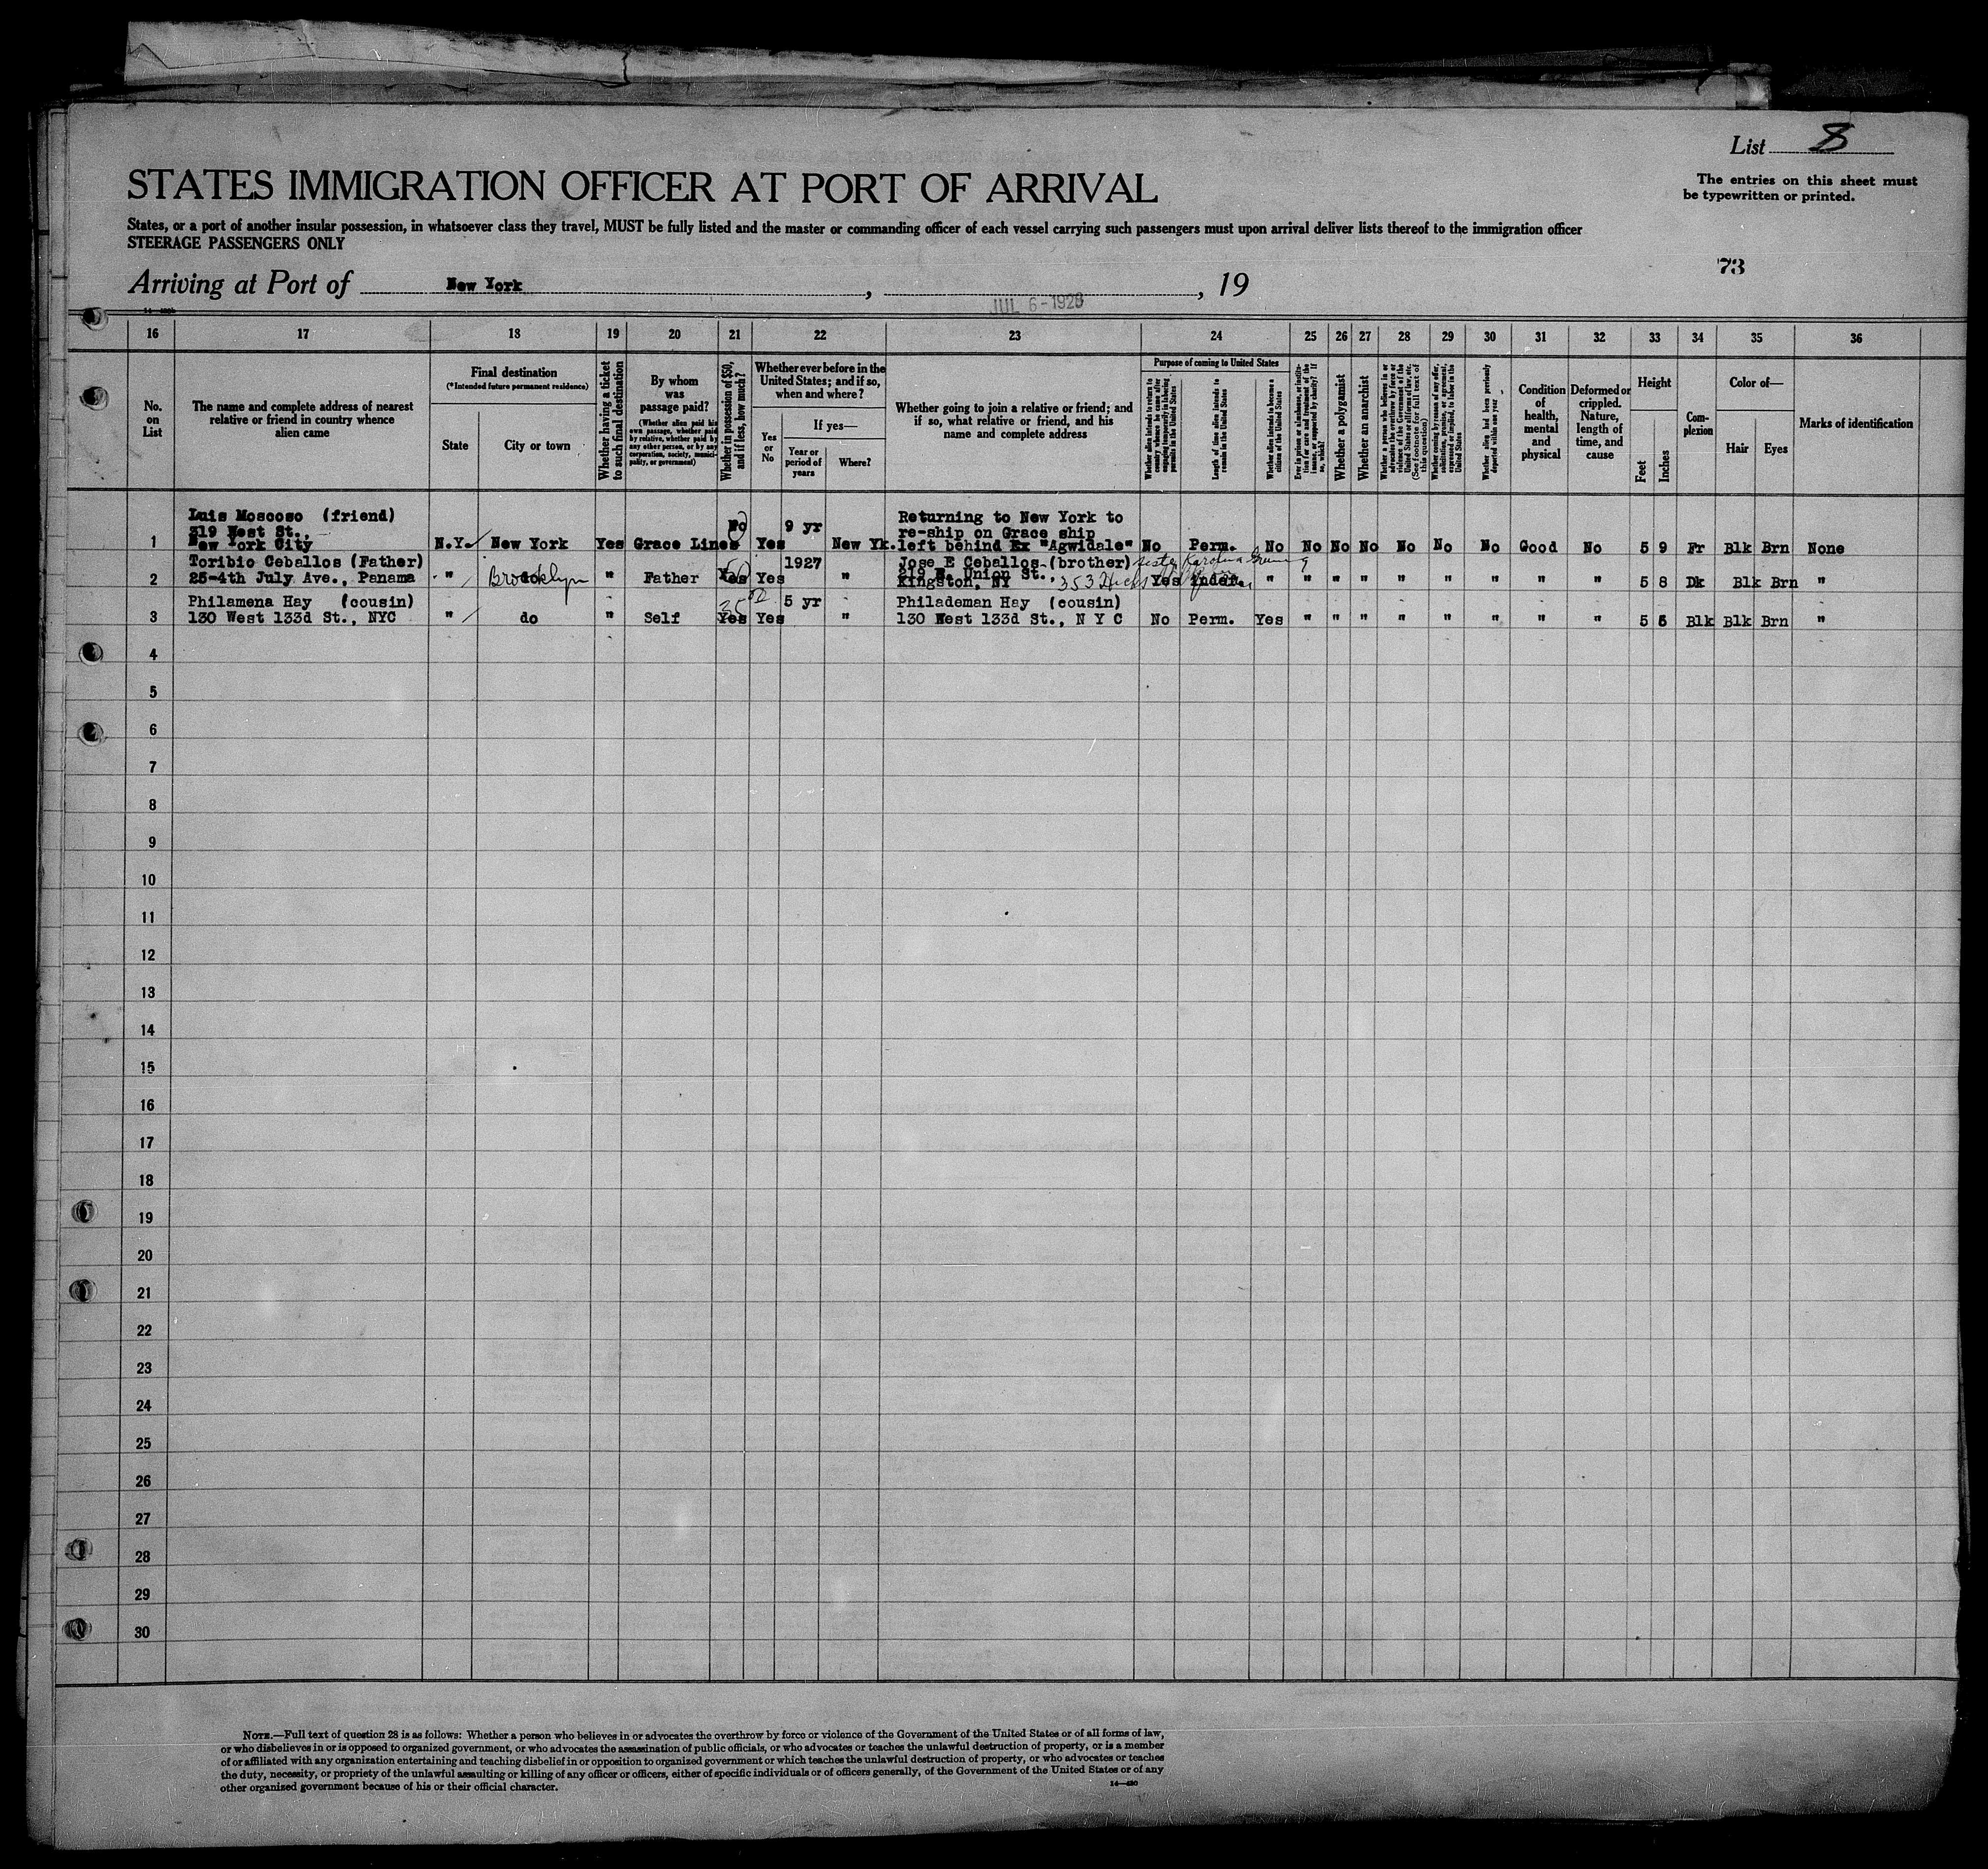 List 8
STATES IMMIGRATION OFFICER AT PORT OF ARRIVAL
The entries on this sheet must
be typewritten or printed.
States, or a port of another insular possession, in whatsoever class they travel, MUST be fully listed and the master or commanding officer of each vessel carrying such passengers must upon arrival deliver lists thereof to the immigration officer
STEERAGE PASSENGERS ONLY
73
Arriving at Port of New York, JUL 6-1928, 19
16 17 18 19 20 21 22 23 24 25 26 27 28 29 30 31 32 33 34 35 36
No. on List
The name and complete address of nearest
relative or friend in country whence
alien came
Final destination
(*Intended future permanent residence)
State
City or town
Whether having a ticket
to such final destination
By whom
was
passage paid?
(Whether alien paid his
own passage, whether paid
by relative, whether paid by
any other person, or by any
corporation, society, munici-
pality, or government)
Whether in possession of $50,
and if less, how much?
Whether ever before in the
United States; and if so,
when and where?
Yes
or
No
If yes—
Year or
period of
years
Where?
Whether going to join a relative or friend; and
if so, what relative or friend, and his
name and complete address
Purpose of coming to United States
Whether alien intends to return to
country whence he came after
engaging temporarily in laboring
pursuits in the United States
Length of time alien intends to
remain in the United States
Whether alien intends to become a
citizen of the United States
Ever in prison or almshouse, or institu-
tion for care and treatment of the
insane, or supported by charity? If
so, which?
Whether a polygamist
Whether an anarchist
Whether a person who believes in or
advocates the overthrow by force or
violence of the Government of the
United States or all forms of law, etc.
(See footnote for full text of
this question)
Whether coming by reason of any offer,
solicitation, promise, or agreement,
expressed or implied, to labor in the
United States
Whether alien had been previously
deported within one year
Condition
of
health,
mental
and
physical
Deformed or
crippled.
Nature,
length of
time, and
cause
Height
Feet
Inches
Com-
plexion
Color of—
Hair
Eyes
Marks of identification
Luis Moscoso (friend)
319 West St.,
New York City
1 N.Y. New York Yes Grace Line No Yes 9 yr New Yk.
Returning to New York to
re-ship on Grace ship
left behind Ex "Agwidale" No Perm. No No No No No No No Good No 5 9 Fr Blk Brn None
Toribio Ceballos (Father)
25-4th July Ave., Panama
2 " Brooklyn " Father Yes 50 Yes 1927 "
Jose E Ceballos (brother) sister Karolina
219 E. Union St.,
Kingston, NY 353 Hicks Yes indef. " " " " " " " " " 5 8 Dk Blk Brn "
Philamena Hay (cousin)
130 West 133d St., NYC
3 " do " Self Yes 35 Yes 5 yr "
Philademan Hay (cousin)
130 West 133d St., N Y C No Perm. Yes " " " " " " " " 5 5 Blk Blk Brn "
4
5
6
7
8
9
10
11
12
13
14
15
16
17
18
19
20
21
22
23
24
25
26
27
28
29
30
NOTE.—Full text of question 28 is as follows: Whether a person who believes in or advocates the overthrow by force or violence of the Government of the United States or of all forms of law,
or who disbelieves in or is opposed to organized government, or who advocates the assassination of public officials, or who advocates or teaches the unlawful destruction of property, or is a member
of or affiliated with any organization entertaining and teaching disbelief in or opposition to organized government or which teaches the unlawful destruction of property, or who advocates or teaches
the duty, necessity, or propriety of the unlawful assaulting or killing of any officer or officers, either of specific individuals or of officers generally, of the Government of the United States or of any
other organized government because of his or their official character.
14—430